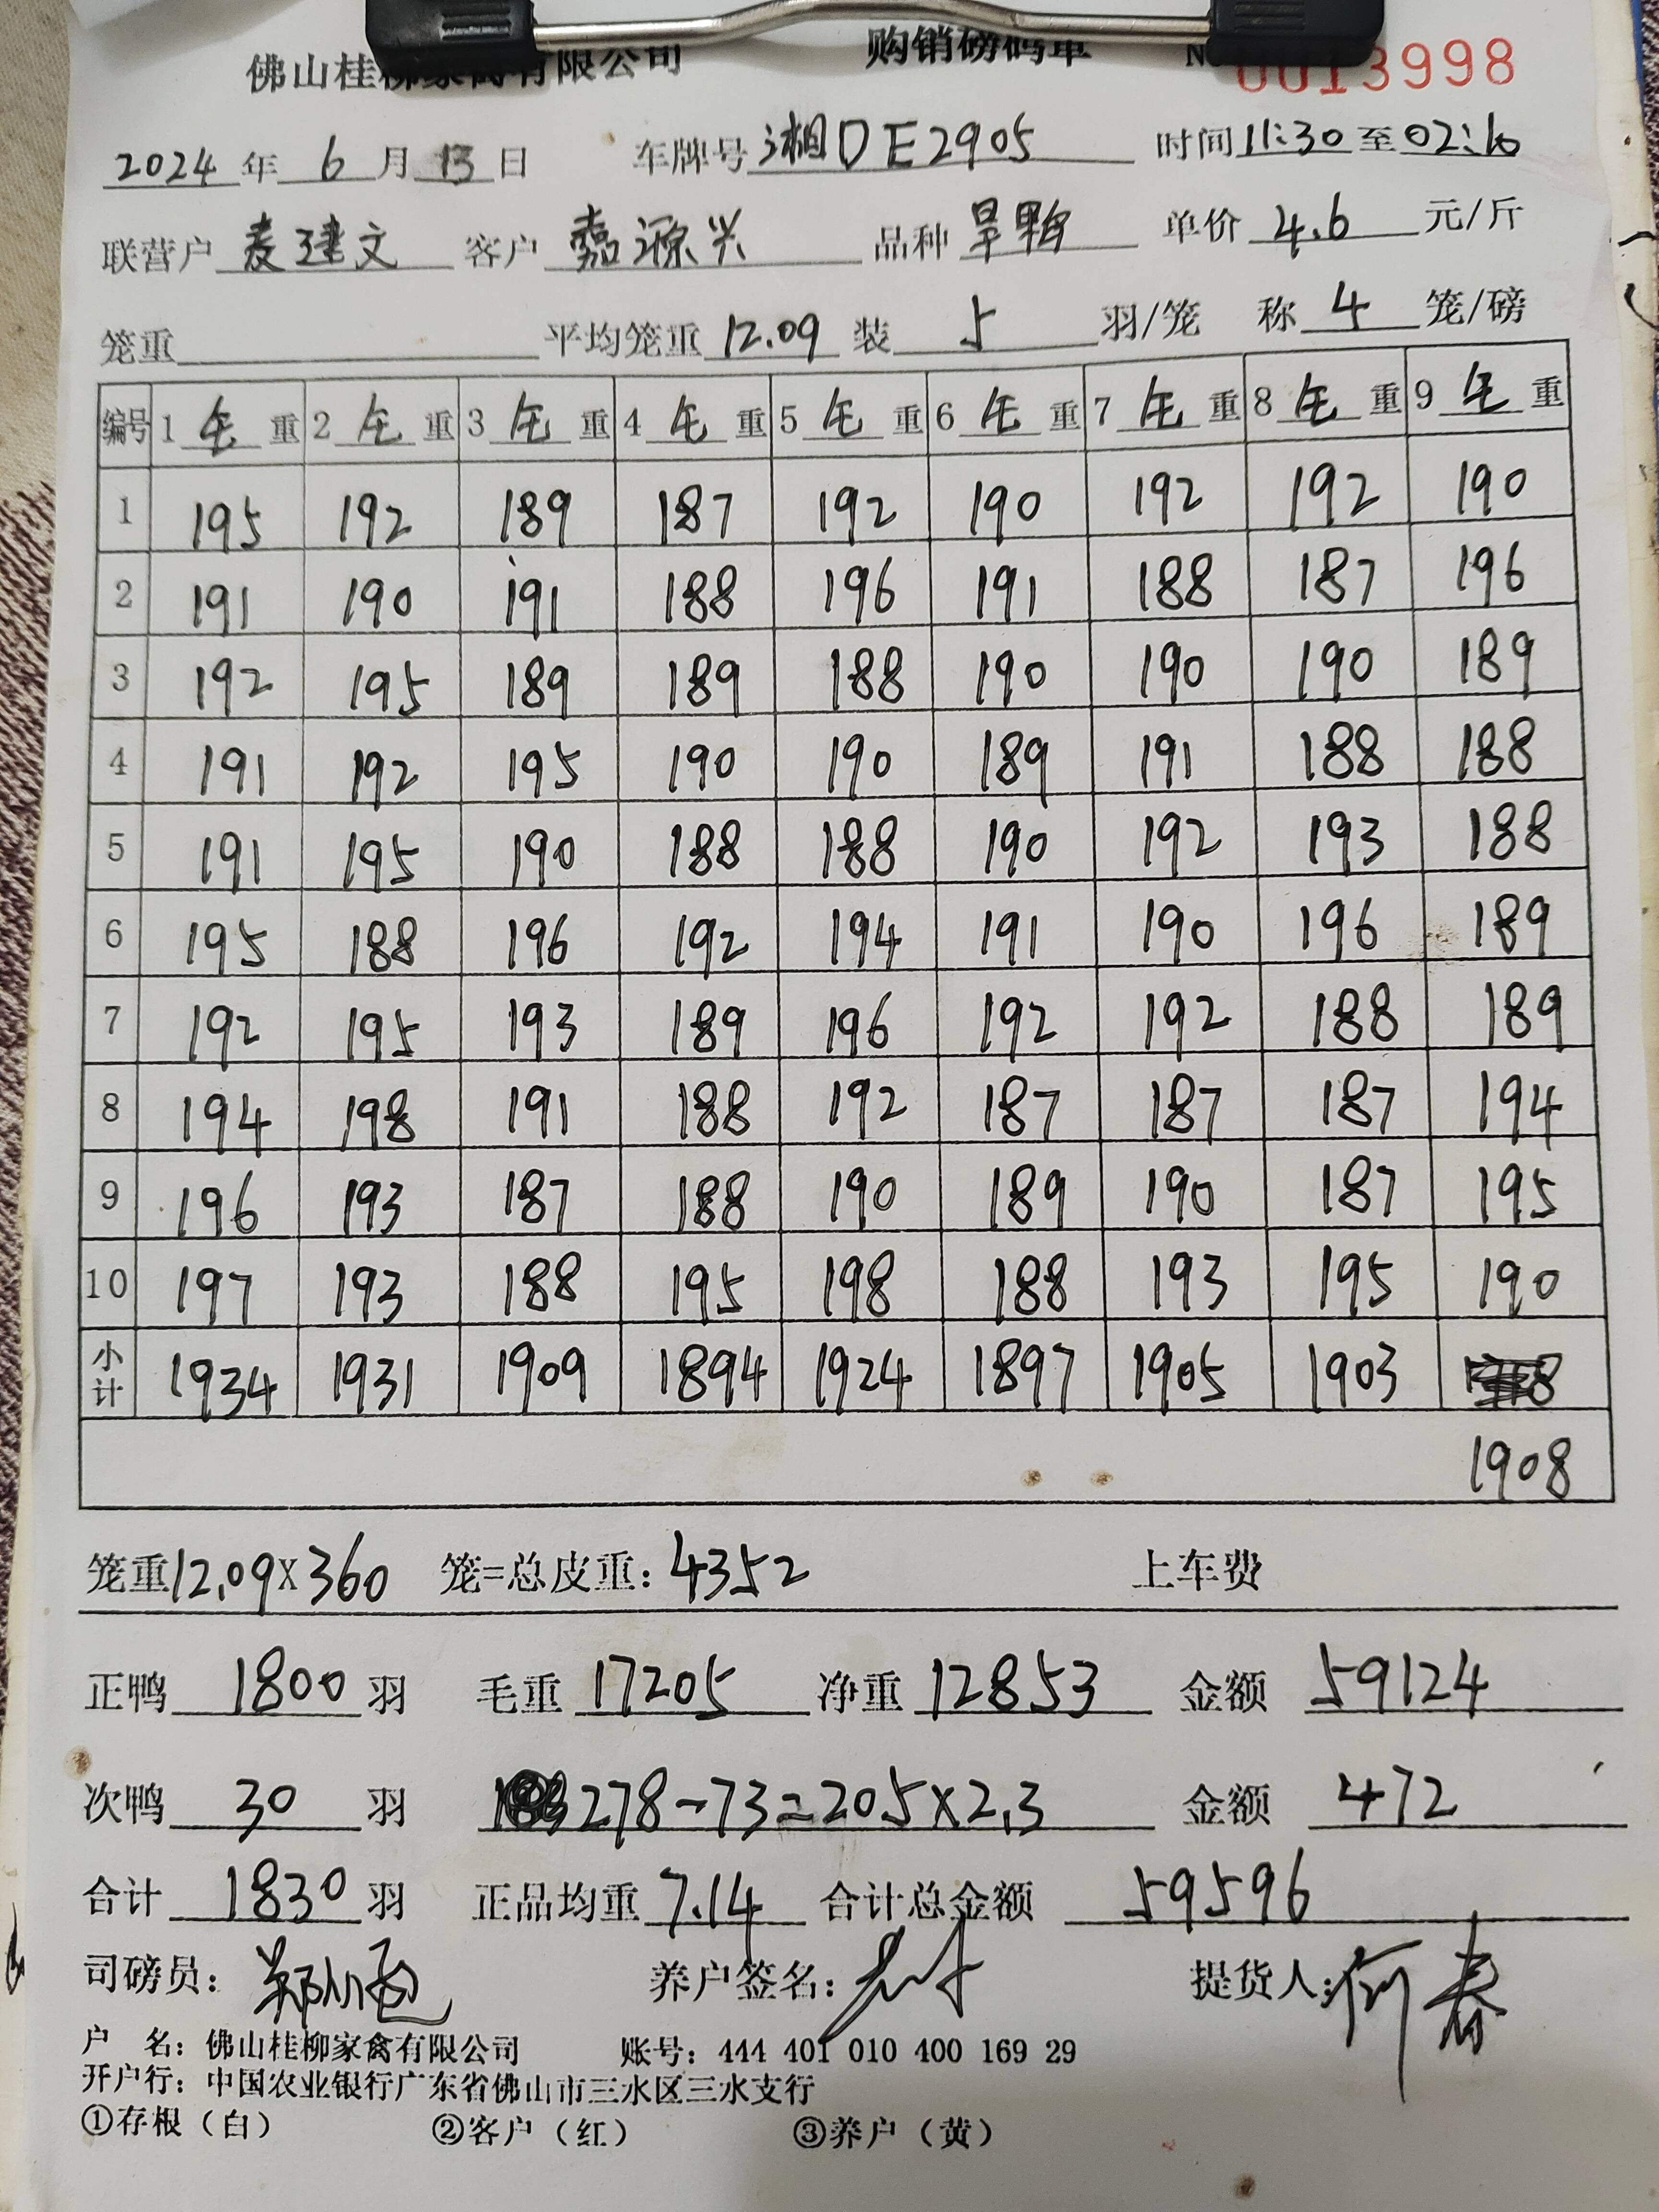 佛山桂柳家禽有限公司 购销磅码单 No 0013998
2024 年 6 月 13 日 车牌号 湘DE2905 时间 11:30 至 02:10
联营户 麦建文 客户 嘉源兴 品种 旱鸭 单价 4.6 元/斤
笼重 平均笼重 12.09 装 5 羽/笼 称 4 笼/磅
编号 1 毛 重 2 毛 重 3 毛 重 4 毛 重 5 毛 重 6 毛 重 7 毛 重 8 毛 重 9 毛 重
1 195 192 189 187 192 190 192 192 190
2 191 190 191 188 196 191 188 187 196
3 192 195 189 189 188 190 190 190 189
4 191 192 195 190 190 189 191 188 188
5 191 195 190 188 188 190 192 193 188
6 195 188 196 192 194 191 190 196 189
7 192 195 193 189 196 192 192 188 189
8 194 198 191 188 192 187 187 187 194
9 196 193 187 188 190 189 190 187 195
10 197 193 188 195 198 188 193 195 190
小计 1934 1931 1909 1894 1924 1897 1905 1903
1908
笼重 12.09X360 笼=总皮重: 4352 上车费
正鸭 1800 羽 毛重 17205 净重 12853 金额 59124
次鸭 30 羽 278-73=205X2.3 金额 472
合计 1830 羽 正品均重 7.14 合计总金额 59596
司磅员: 养户签名: 提货人: 何春
户 名: 佛山桂柳家禽有限公司 账号: 444 401 010 400 169 29
开户行: 中国农业银行广东省佛山市三水区三水支行
①存根（白） ②客户（红） ③养户（黄）